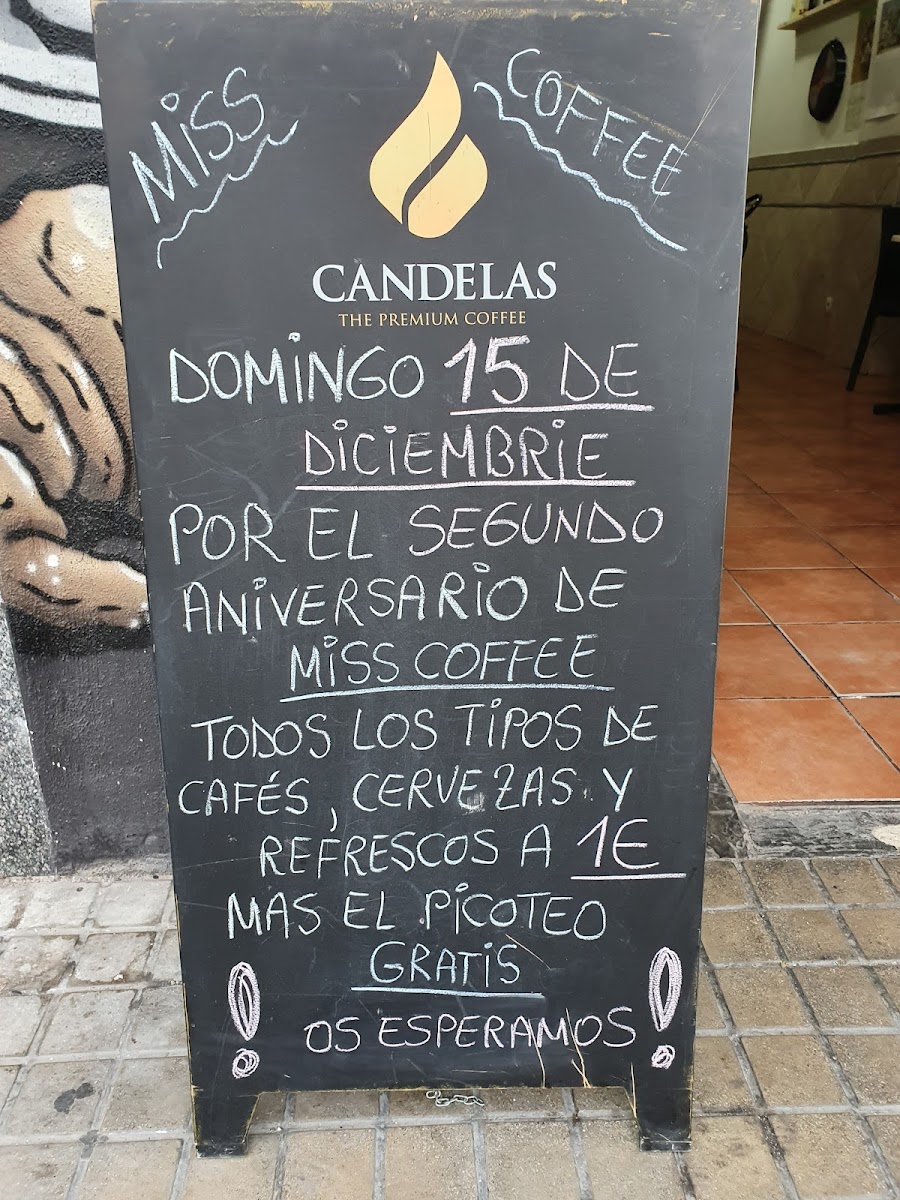 MiSS COFFEE
CANDELAS
THE PREMIUM COFFEE
DOMiNGO 15 DE
DiCiEMBRiE
POR EL SEGUNDO
ANiVERSARiO DE
MiSS COFFEE
TODOS LOS TiPOS DE
CAFÉS, CERVEZAS Y
REFRESCOS A 1€
MAS EL PiCOTEO
GRATiS
! OS ESPERAMOS !